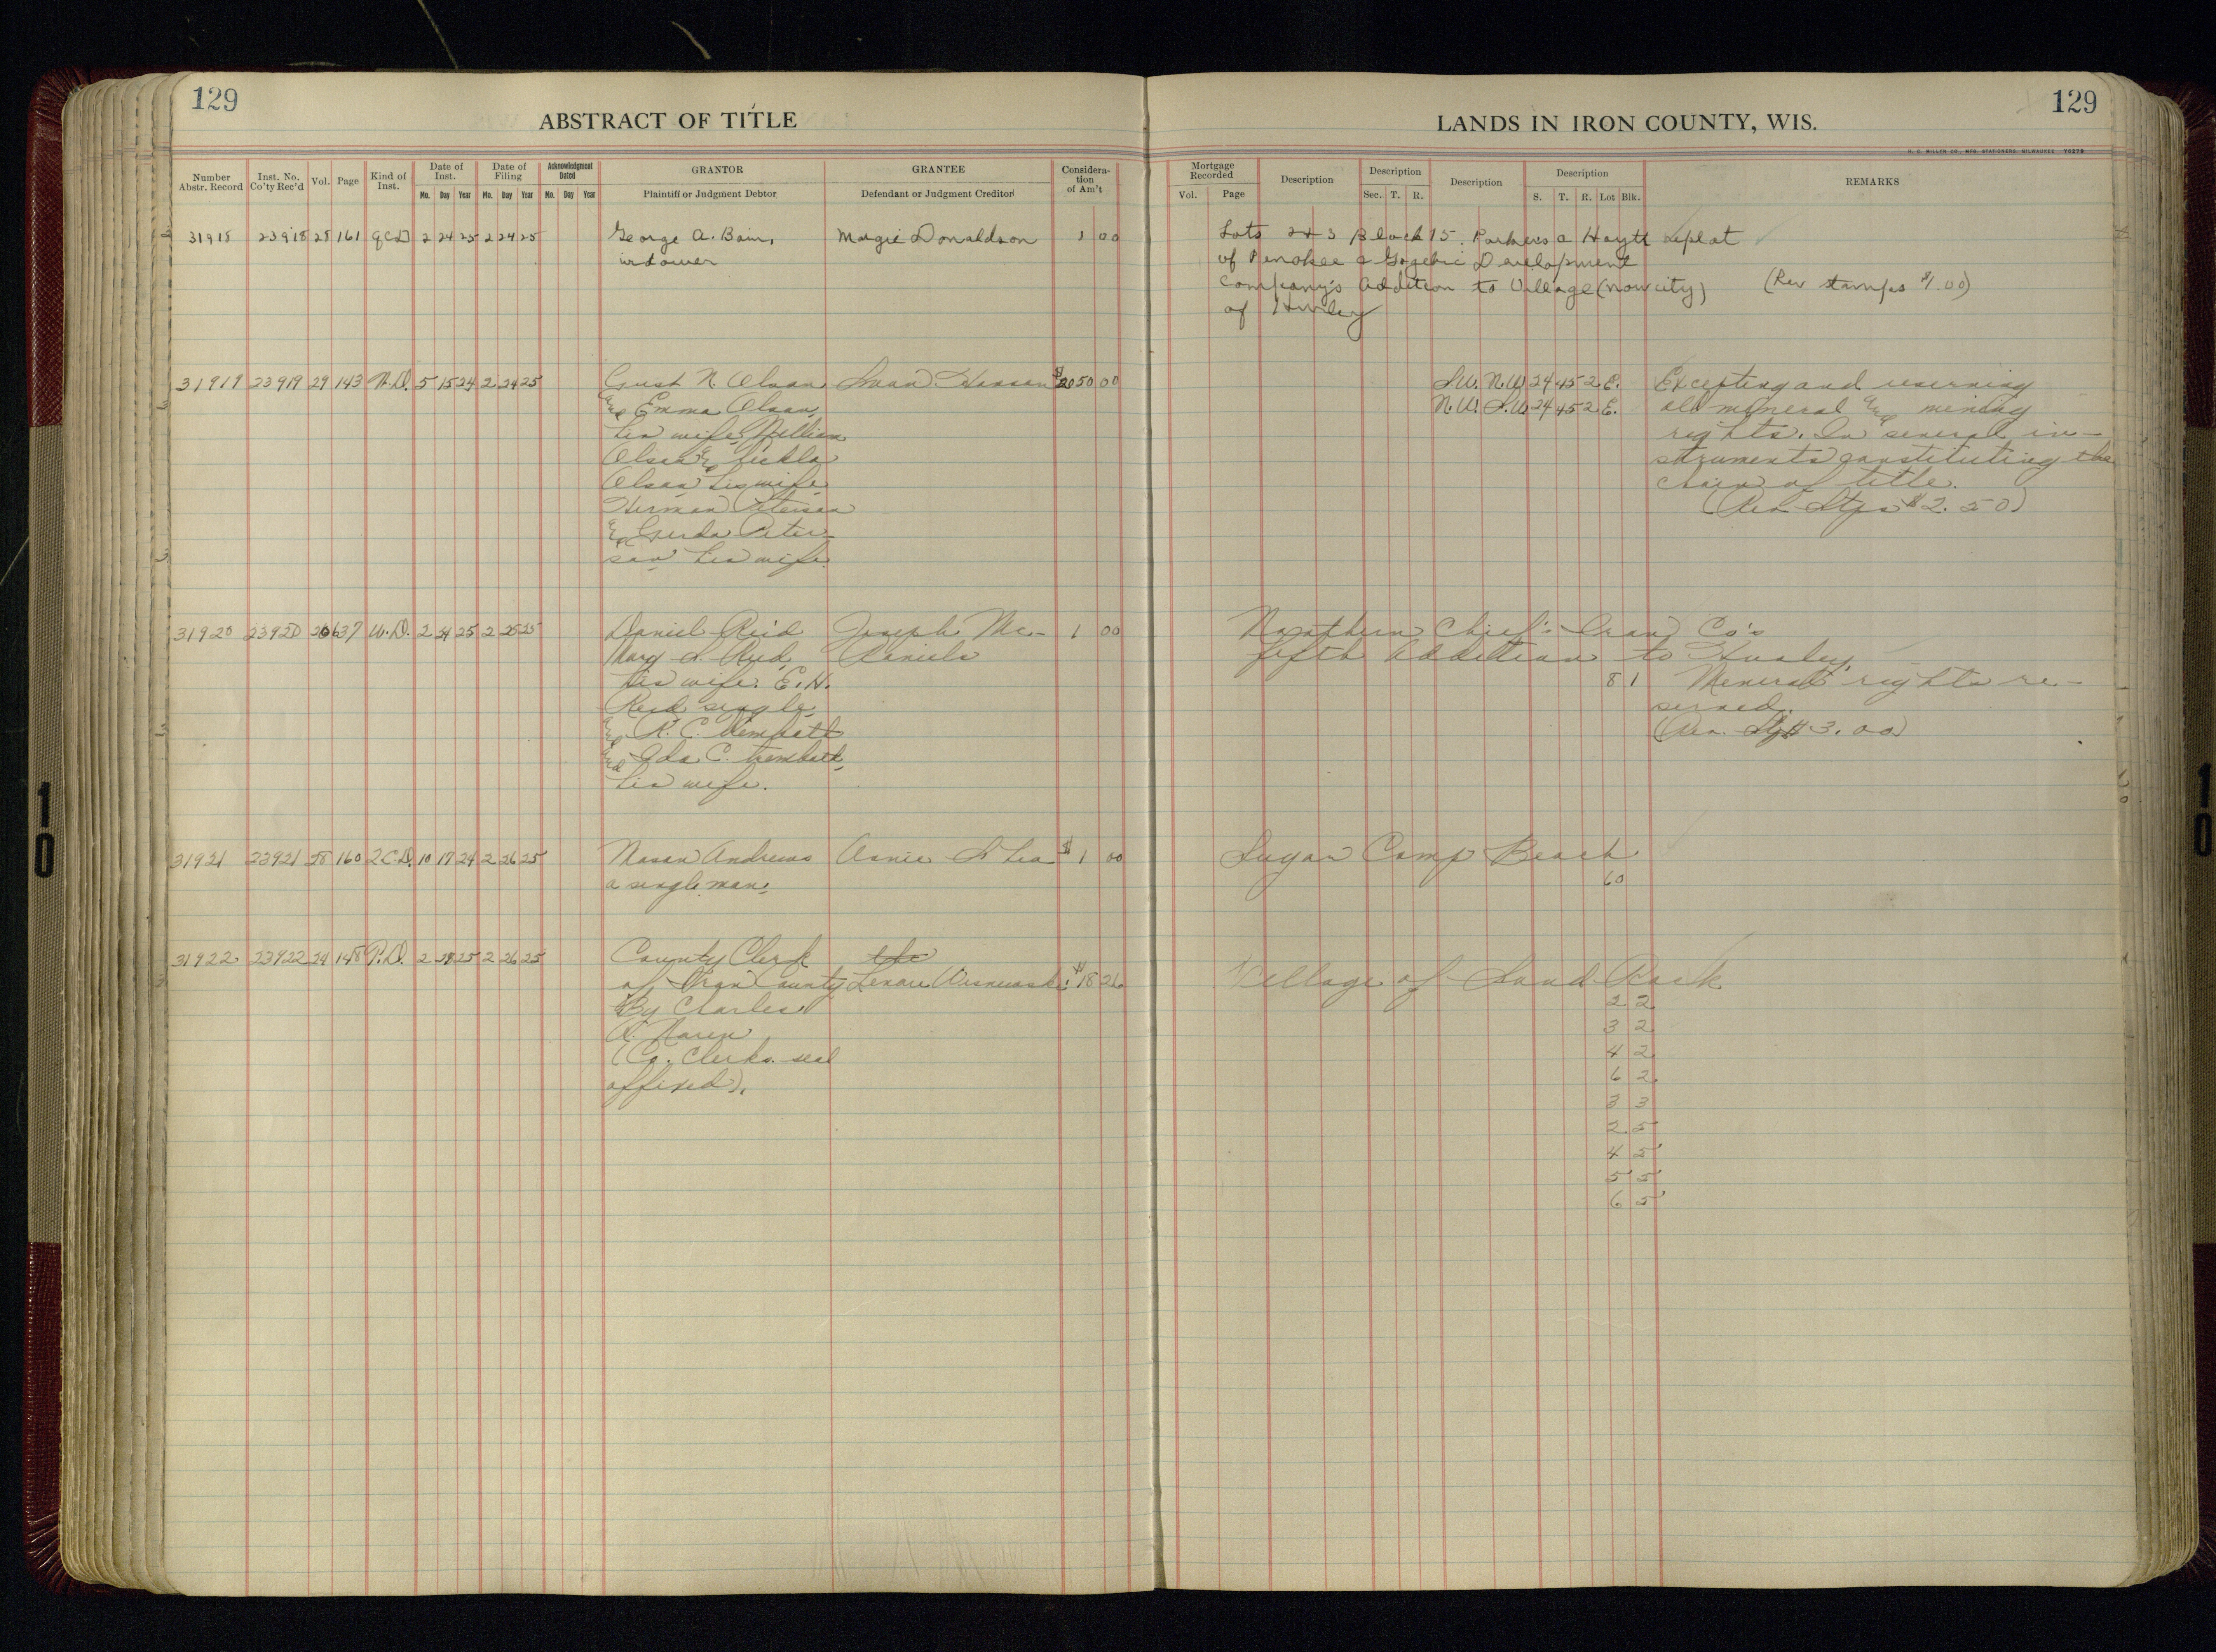 129
ABSTRACT OF TITLE
Number Abstr. Record Inst. No. Co'ty Rec'd Vol. Page Kind of Inst. Date of Inst. Mo. Day Year Date of Filing Mo. Day Year Acknowledgment Dated Mo. Day Year GRANTOR GRANTEE Considera-tion of Am't
Plaintiff or Judgment Debtor Defendant or Judgment Creditor
31918 23918 28 161 QCD 2 24 25 2 24 25 George A. Bain, Margie Donaldson 1 00
widower
31919 23919 29 143 W.D. 5 15 24 2 24 25 Gust N. Olson Swan Hanson $2050 00
and Emma Olson,
his wife, William
Olson and
Olson his wife
Herman Peterson
and Gerda Peter-
son his wife.
31920 23920 26 637 W.D. 2 24 25 2 25 25 Daniel Reid Joseph Mc- 1 00
Mary L. Reid, Daniels
his wife. E. H.
Reid single,
and R. C. Trembath
and Ida C. Trembath,
his wife.
31921 23921 28 160 2 C.D. 10 17 24 2 26 25 Nason Andrews Annie $ 1 00
a single man,
31922 23922 24 148 T.D. 2 25 2 26 25 County Clerk
of Iron County $18 26
By Charles
A.
(Co. Clerks. seal
affixed).
129
LANDS IN IRON COUNTY, WIS.
H. C. MILLER CO., MFG. STATIONERS, MILWAUKEE
Mortgage Recorded Vol. Page Description Description Sec. T. R. Description Description S. T. R. Lot Blk. REMARKS
Lots 2+3 Block 15. Parker's a Hoyt Replat
of Penokee & Gogebic Development
Company's Addition to Village (now city) (Rev stamps $1.00)
of Hurley
S.W. N.W. 24 45 2 E. Excepting and reserving
N.W. S.W. 24 45 2 E. all mineral and mining
rights. In several in-
struments constituting the
chain of title.
(Rev. Stps $2.50)
Northern Chief's Iron Co's
fifth Addition to Hurley,
8 1 Mineral rights re-
served.
(Rev. $3.00)
Sugar Camp Beach
60
Village of Sand Rock
2 2
3 2
4 2
6 2
3 3
2 5
4 5
5 5
6 5